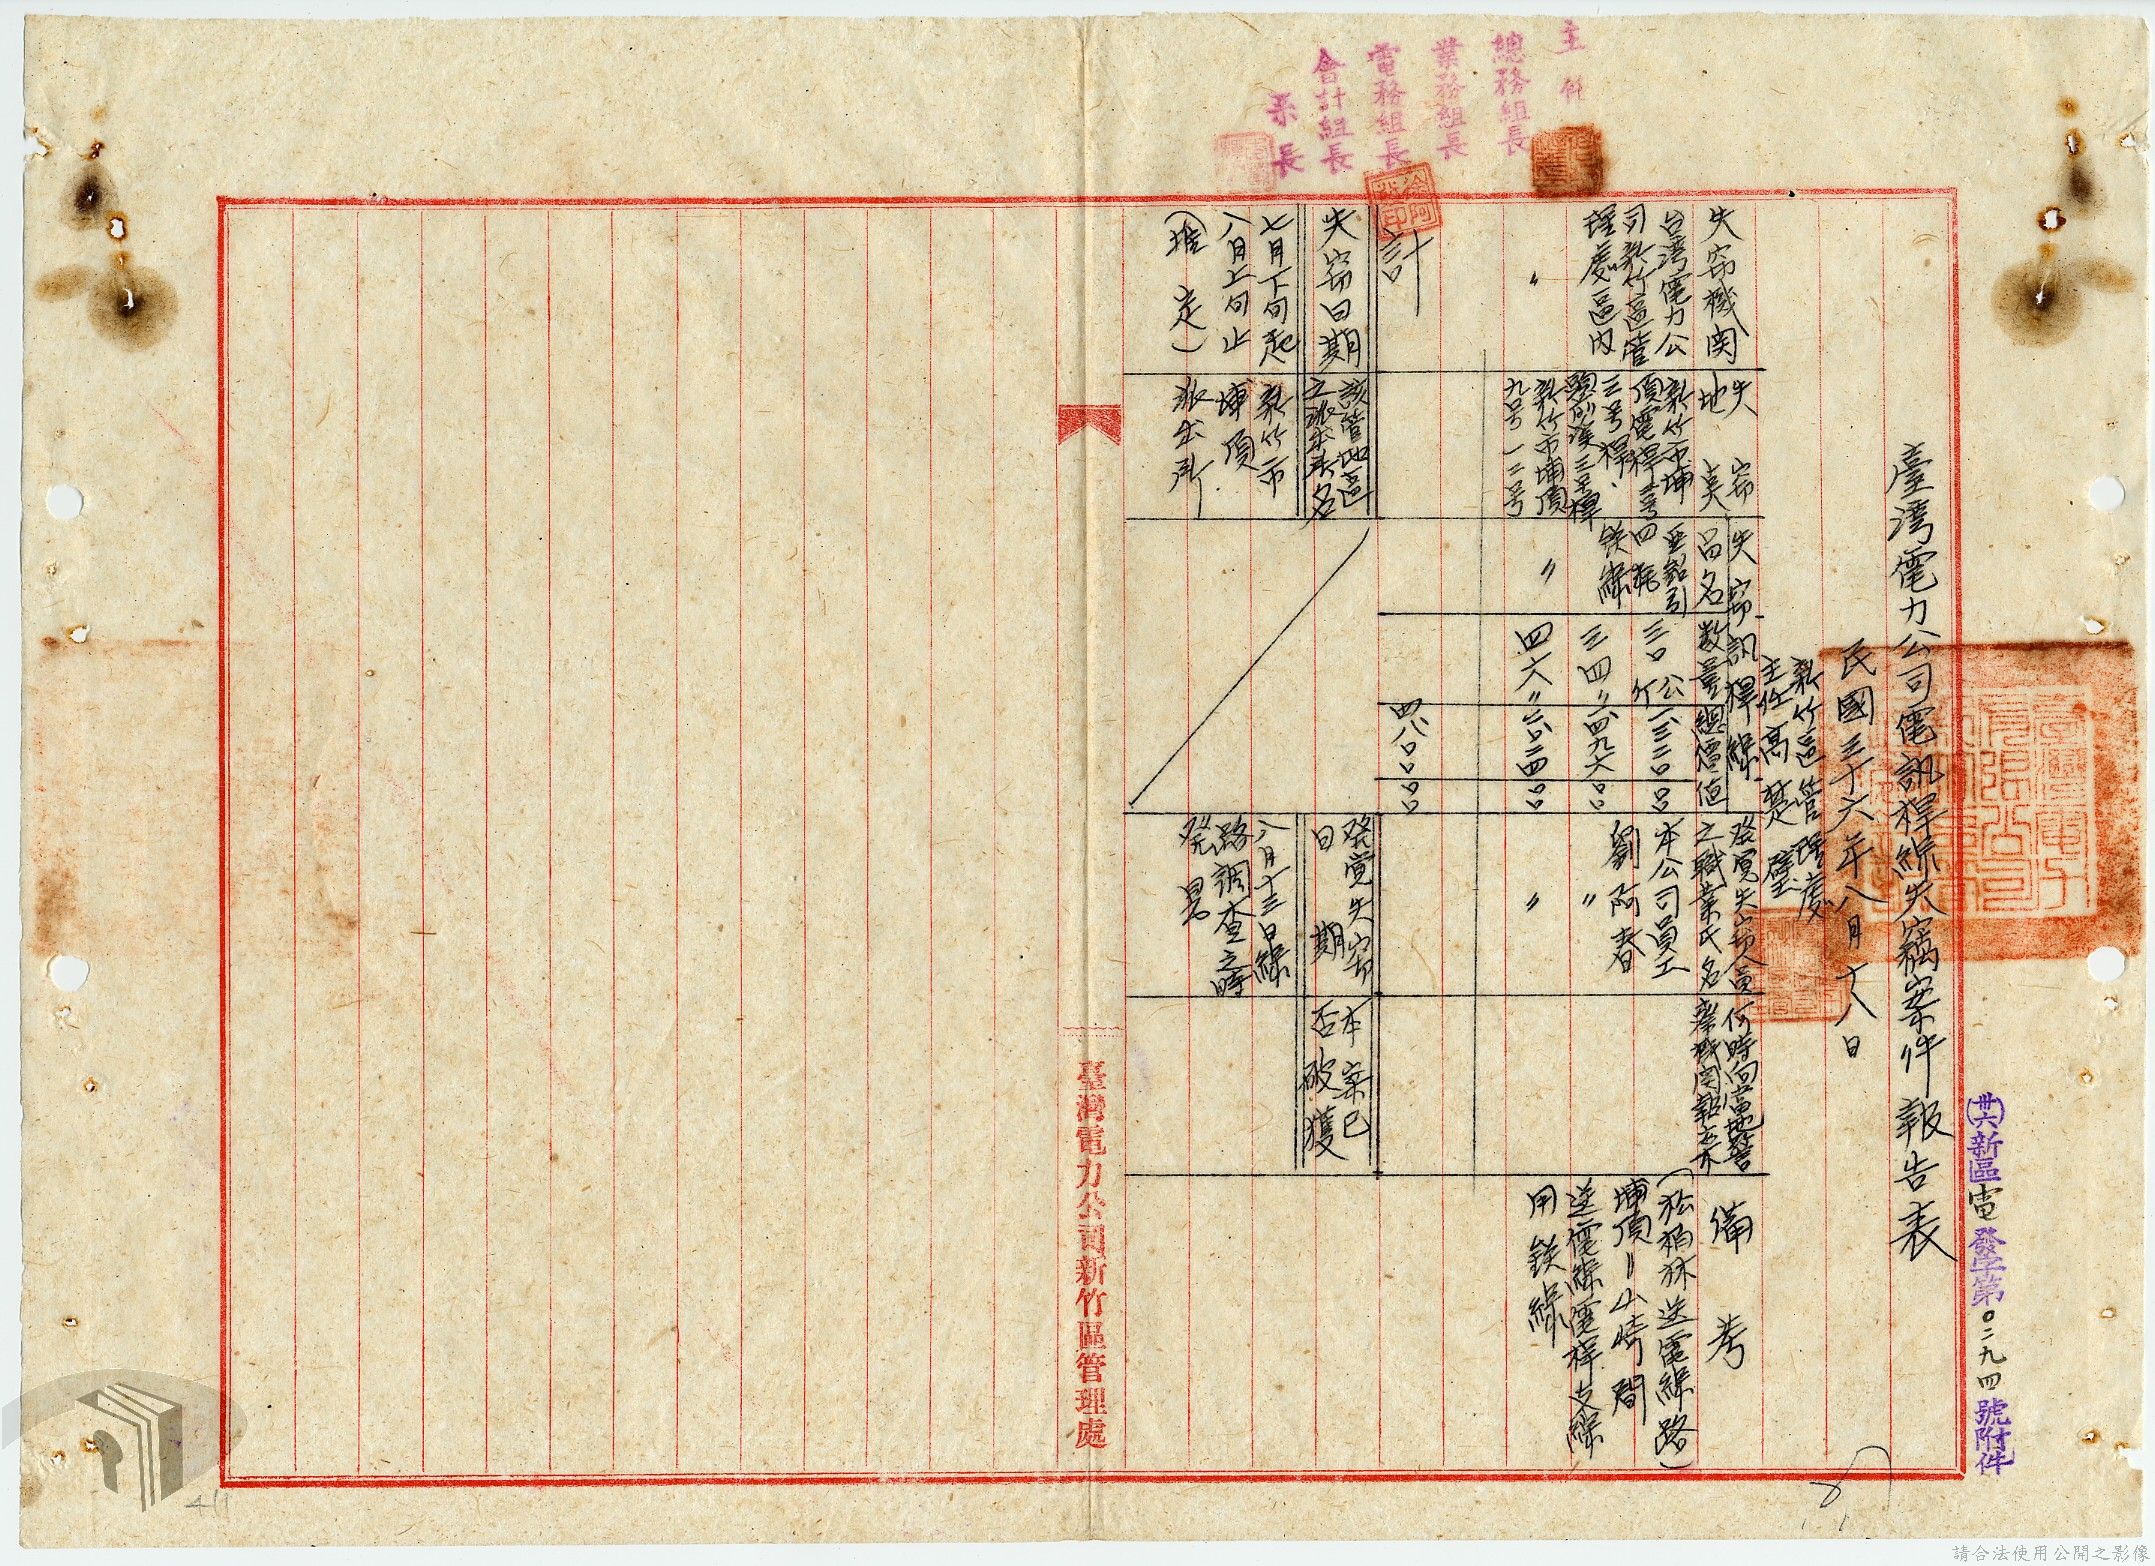 卅六新區電發字第〇二九四號附件
臺灣電力公司電訊桿線失竊案件報告表
民國三十六年八月十八日
新竹區管理處
主任高楚璧
失竊機関
台湾電力公
司新竹區管
理處區內
〃
計
失竊
地奌
新竹市埔
頂電桿二号
三号桿、
頭前溪三至桿
新竹市埔頂
九号一二号
失竊訊桿線
品名
亜鉛引
四粍
鉄線
〃
数量
三〇公斤
三四〃
四六〃
總價值
一三二〇 〇〇
一四九六 〇〇
二〇二四 〇〇
四八〇〇 〇〇
發覚失竊人員
之職業氏名
本公司員工
劉阿春
〃
〃
何時向當地警
察機関報案
備考
(松柏林送電線路)
埔頂〃山崎間
送電線電桿支線
用鉄線
失竊日期
七月下旬起
八月上旬止
(推定)
該管地區
之派出所名
新竹市
埔頂
派出所
發覚失竊
日期
八月十三日線
路調查之時
発見
本案已
否破獲
主任
總務組長
業務組長
電務組長
會計組長
系長
臺灣電力公司新竹區管理處
4/1
請合法使用公開之影像